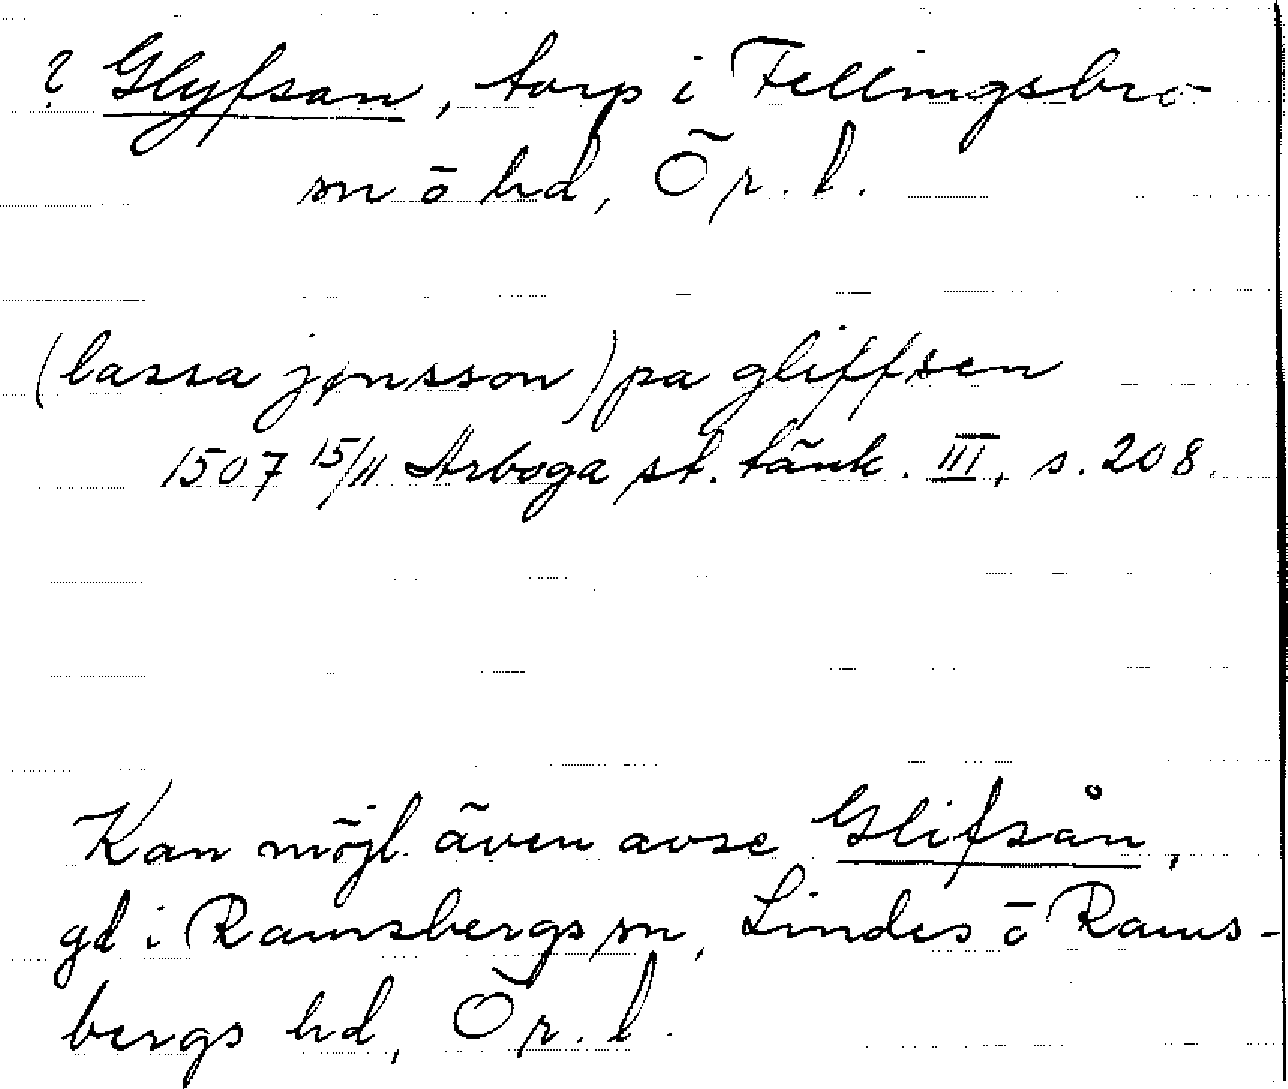 ? Glyfsan, torp i Fellingsbro
sn ō hd, Ör. l.
(lassa jønsson) pa gliffsen
1507 15/11 Arboga st. tänk. III, s. 208.
Kan möjl. även avse Glifsån,
gd i Ramsbergs sn, Lindes ō Rams-
bergs hd, Ör. l.